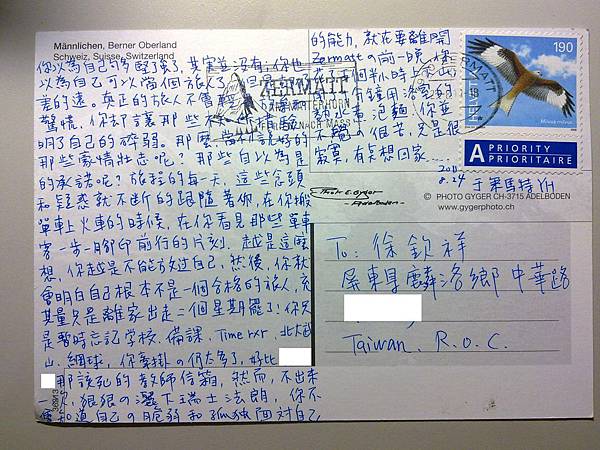 Männlichen, Berner Oberland
Schweiz, Suisse, Switzerland
你以為自己夠堅強了,其實並沒有,你也
以為自己可以當個旅人了,但是卻
差的遠。真正的旅人不會輕
驚慌,你卻讓那些
明了自己的碎弱。那麼當初說好的
那些豪情壯志呢?那些自以為是
的承諾呢?旅程的每一天,這些念頭
和疑惑就不斷的跟隨著你,在你搬
單車上火車的時候,在你看見那些單車
客一步一腳印前行的片刻。越是這麼
想,你越是不能放過自己,然後,你就
會明白自己根本不是一個合格的旅人,充
其量只是離家出走二個星期罷了!你只
是暫時忘記學校、備課、Time rxr、北大武
山、網球,你牽掛の仍太多了,好比
那該死的教師信箱,然而,不出來
一次,狠狠の灑下瑞士法朗,你不
會知道自己の脆弱和孤獨面對自己
的能力,就在要離開
Zermatt の前一晚,你
熱水煮泡麵,你並
不覺の很苦,只是很
寂寞,有點想回家……
2011
8.24 于策馬特YH
ZERMATT
MATTERHORN
FERIEN NACH MASS
ZERMATT
190
Milvus milvus
A PRIORITY
PRIORITAIRE
© PHOTO GYGER CH-3715 ADELBODEN
www.gygerphoto.ch
Photo E. Gyger
Adelboden
To: 徐欽祥
屏東縣麟洛鄉中華路
Taiwan. R.O.C.